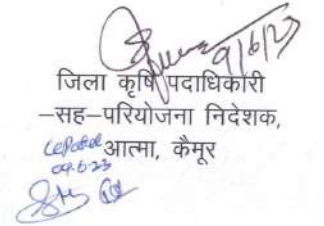 9/6/23
जिला कृषि पदाधिकारी
–सह–परियोजना निदेशक,
आत्मा, कैमूर
09.6.23